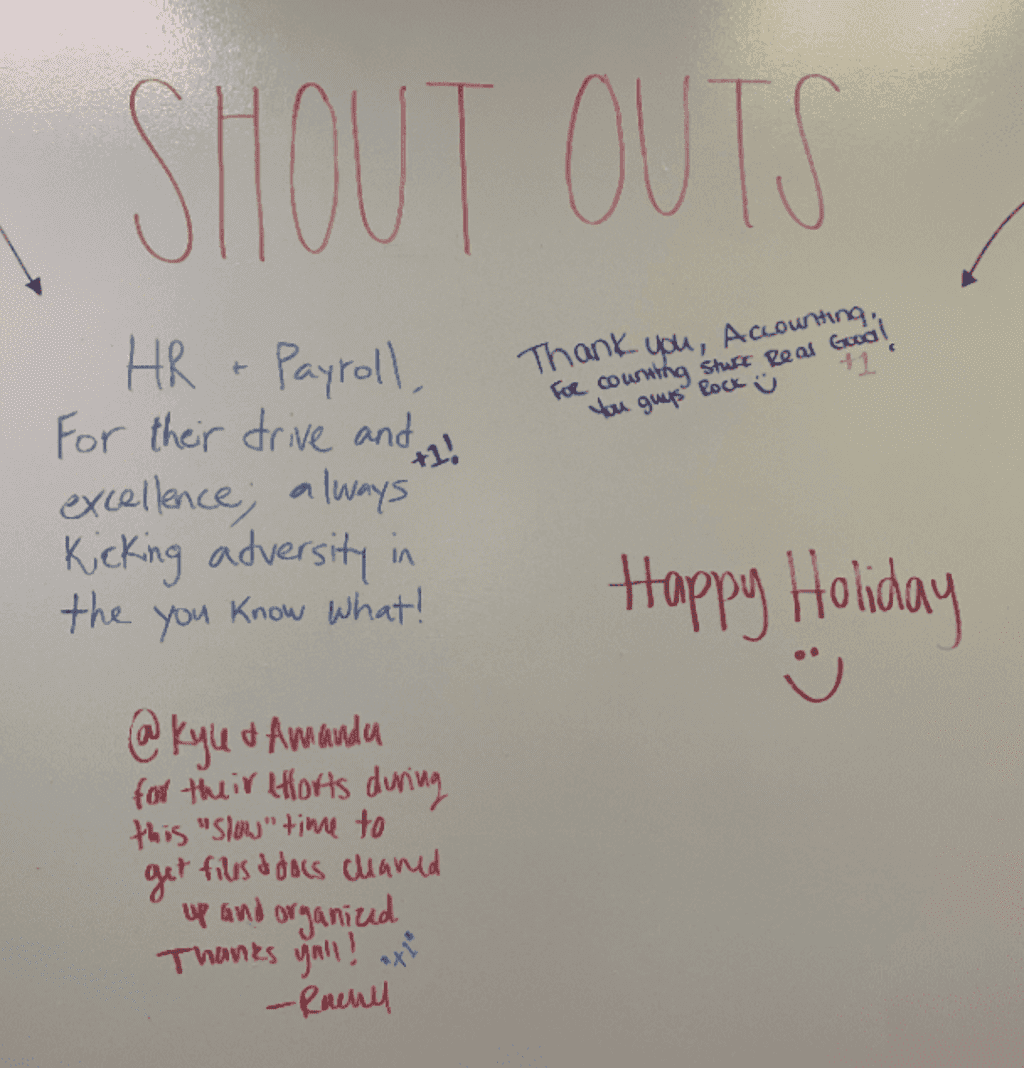 SHOUT OUTS
HR + Payroll,
For their drive and
+1!
excellence, always
Kicking adversity in
the you know what!
Thank you, Accounting,
For counting Stuff Real Good!
+1
You guys Rock
Happy Holiday
@Kyle & Amanda
for their Efforts during
this "slow" time to
get files & docs cleaned
up and organized
Thanks y'all!
—Rachel